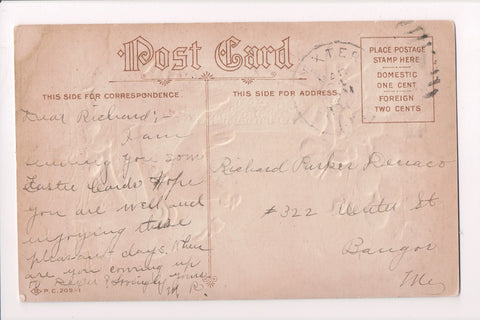 Post Card
THIS SIDE FOR CORRESPONDENCE.
THIS SIDE FOR ADDRESS.
PLACE POSTAGE
STAMP HERE
DOMESTIC
ONE CENT
FOREIGN
TWO CENTS
Dear Richard;
I am
sending you some
Easter Cards Hope
you are well and
enjoying these
pleasant days. When
are you coming up
Lovingly yours
P.C. 209-1
Richard Parker
#322 St.
Bangor
Me,